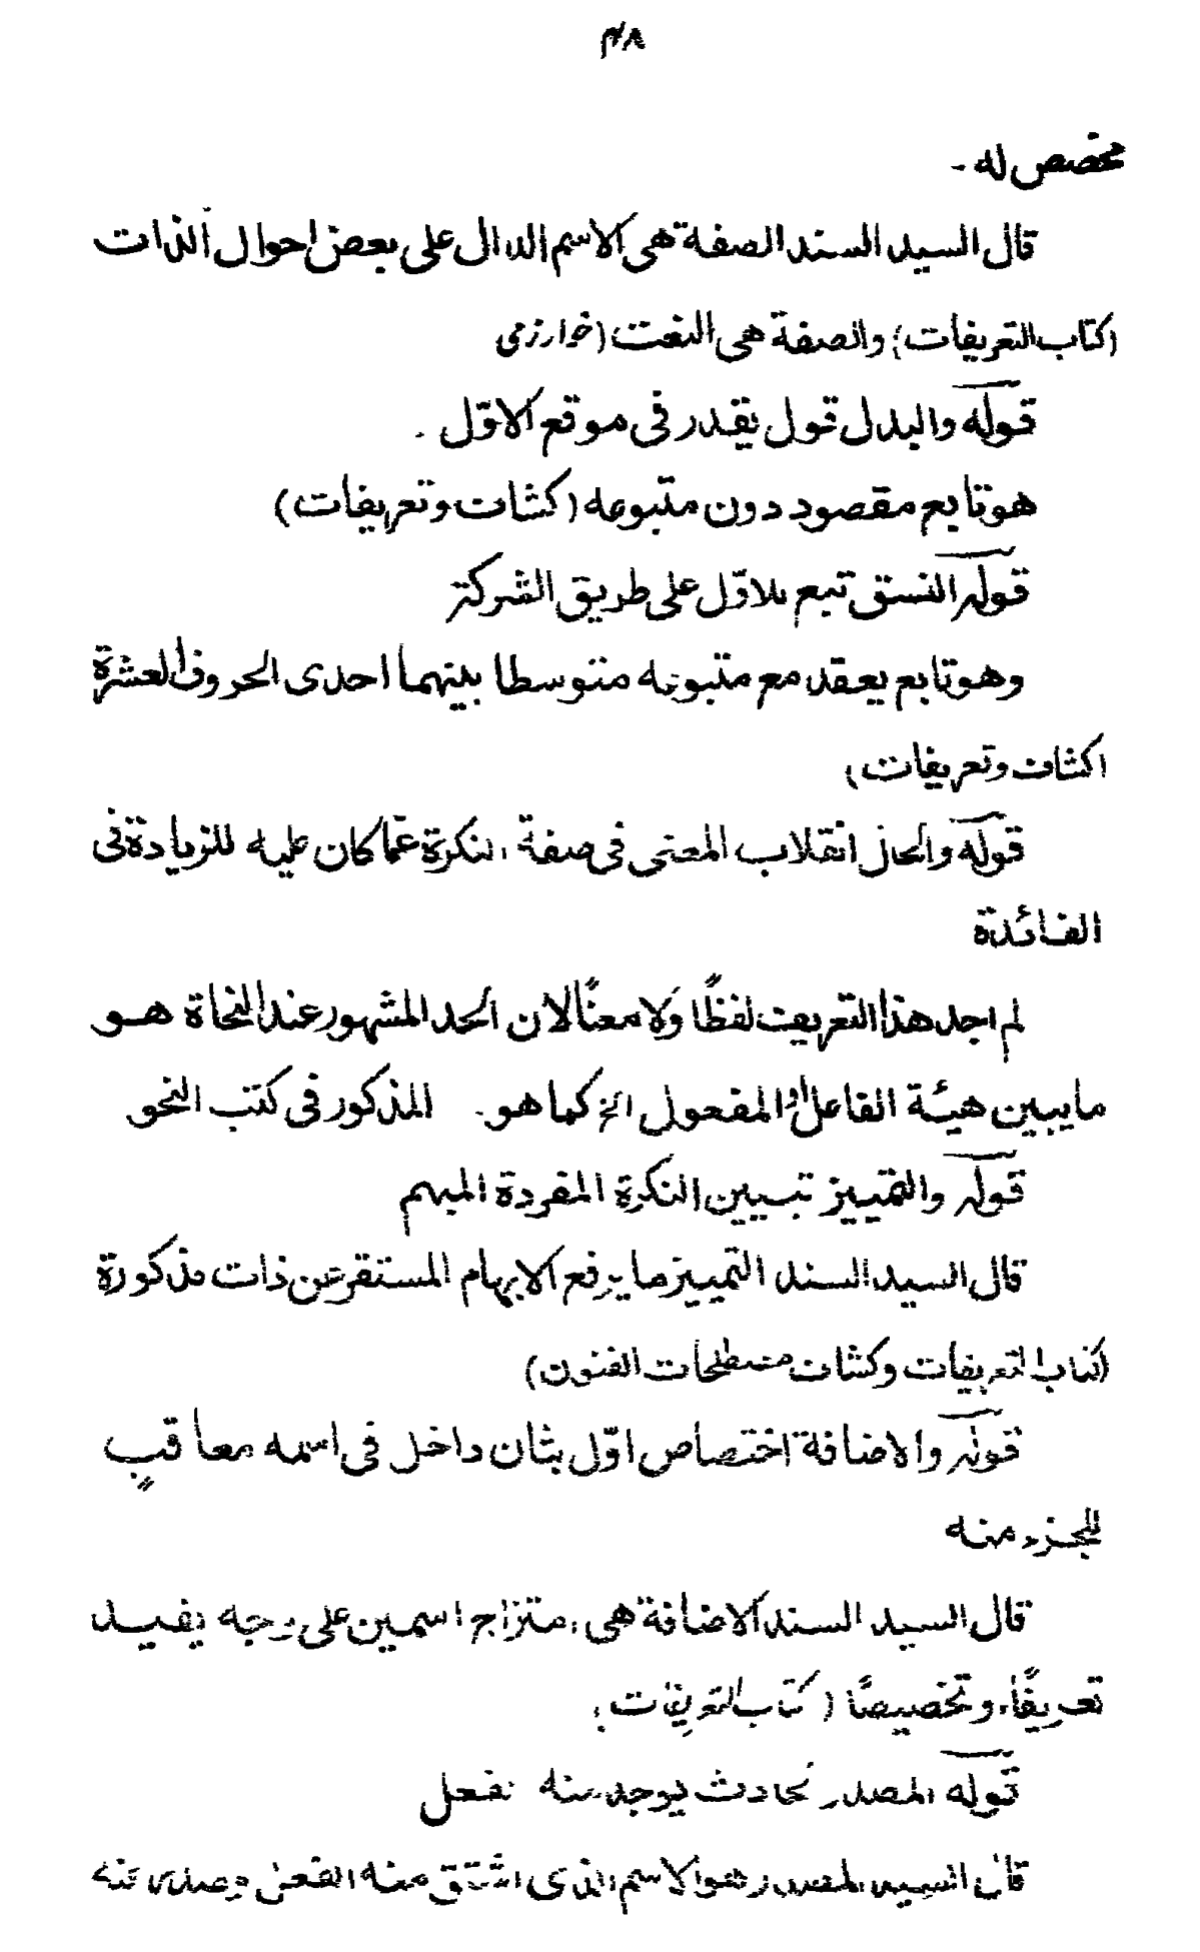 ۴۸
مخصص له -
قال السيد السند الصفة هى الاسم الدال على بعض احوال الذات
(كتاب التعريفات) والصفة هى النعت (خوارزمى
قوله والبدل قول يقدر فى موقع الاوّل .
هو تابع مقصود دون متبوعه (كشاف وتعريفات)
قوله النسق تبع للاوّل على طريق الشركة
وهو تابع يعقد مع متبوعه متوسطا بينهما احدى الحروف العشرة
(كشاف وتعريفات)
قوله والحال انقلاب المعنى فى صفة النكرة عمّا كان عليه للزيادة فى
الفائدة
لم اجد هذا التعريف لفظًا ولا معنًا لان الحد المشهور عند النحاة هو
ما يبين هيئة الفاعل او المفعول الخ كما هو. المذكور فى كتب النحو
قوله والتمييز تبيين النكرة المفردة المبهم
قال السيد السند التمييز ما يرفع الابهام المستقر عن ذات مذكورة
(كتاب التعريفات وكشاف مصطلحات الفنون)
قوله والاضافة اختصاص اوّل بثان داخل فى اسمه معاقبٍ
للجزء منه
قال السيد السند الاضافة هى امتزاج اسمين على وجه يفيد
تعريفًا وتخصيصًا (كتاب التعريفات)
قوله المصدر حادث يوجد منه فعل
قال السيد المصدر هو الاسم الذى اشتق منه الفعل وصدر عنه